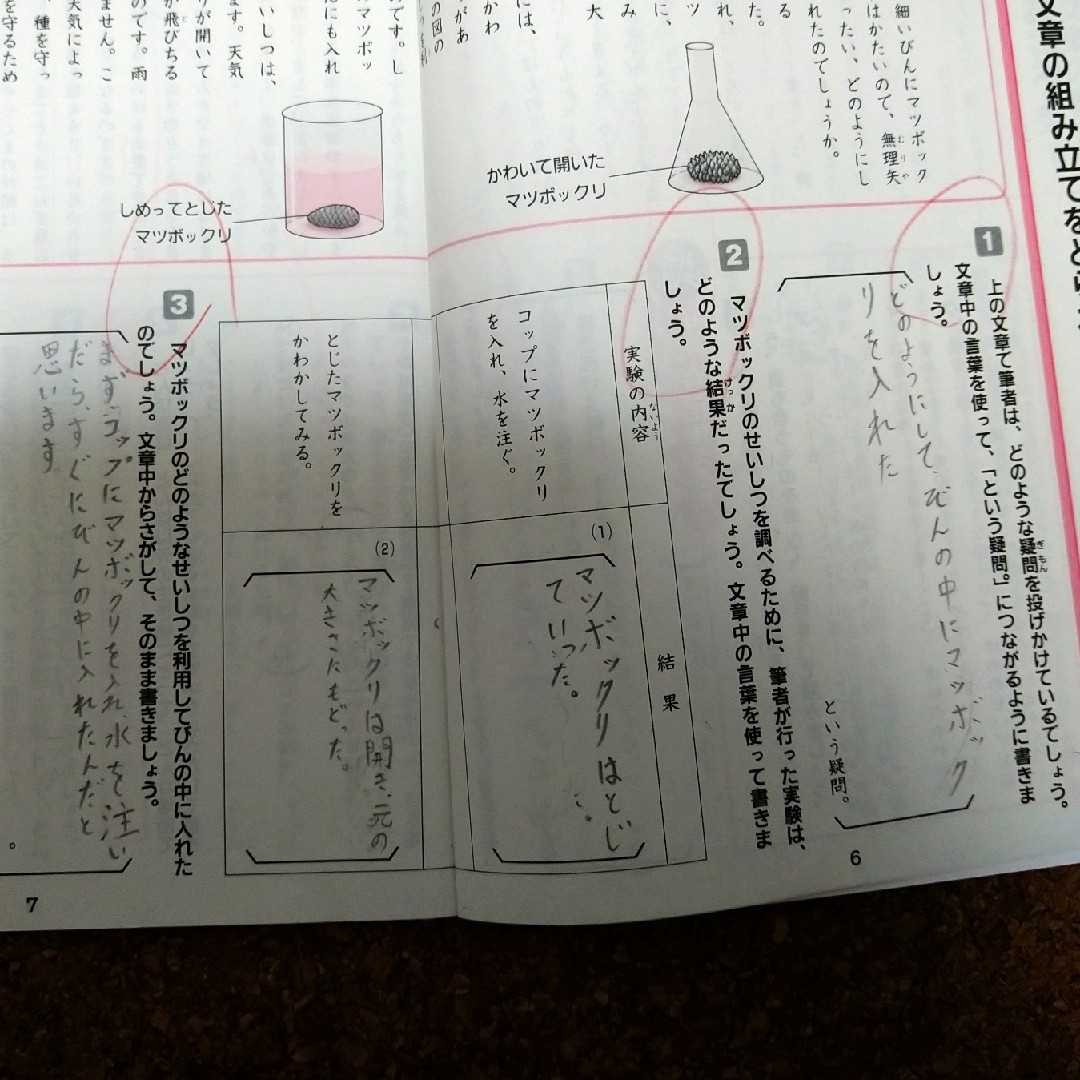 文章の組み立てをとら
細いびんにマツボック
はかたいので、無理矢
ったい、どのようにし
れたのでしょうか。
かわいて開いた
マツボックリ
しめってとじた
マツボックリ
1
上の文章で筆者は、どのような疑問を投げかけているでしょう。
文章中の言葉を使って、「という疑問。」につながるように書きま
しょう。
どのようにして、びんの中にマツボック
リを入れた
という疑問。
6
2
マツボックリのせいしつを調べるために、筆者が行った実験は、
どのような結果だったでしょう。文章中の言葉を使って書きま
しょう。
実験の内容
結果
コップにマツボックリ
を入れ、水を注ぐ。
(1)
マツボックリはとじ
ていった。
とじたマツボックリを
かわかしてみる。
(2)
マツボックリは開き、元の
大きさにもどった。
3
マツボックリのどのようなせいしつを利用してびんの中に入れた
のでしょう。文章中からさがして、そのまま書きましょう。
まず、コップにマツボックリを入れ、水を注い
だら、すぐにびんの中に入れたんだと
思います
。
7
いしつは、
ます。天気
りが開いて
が飛びちる
のです。雨
ません。こ
天気によっ
、種を守っ
を守るため